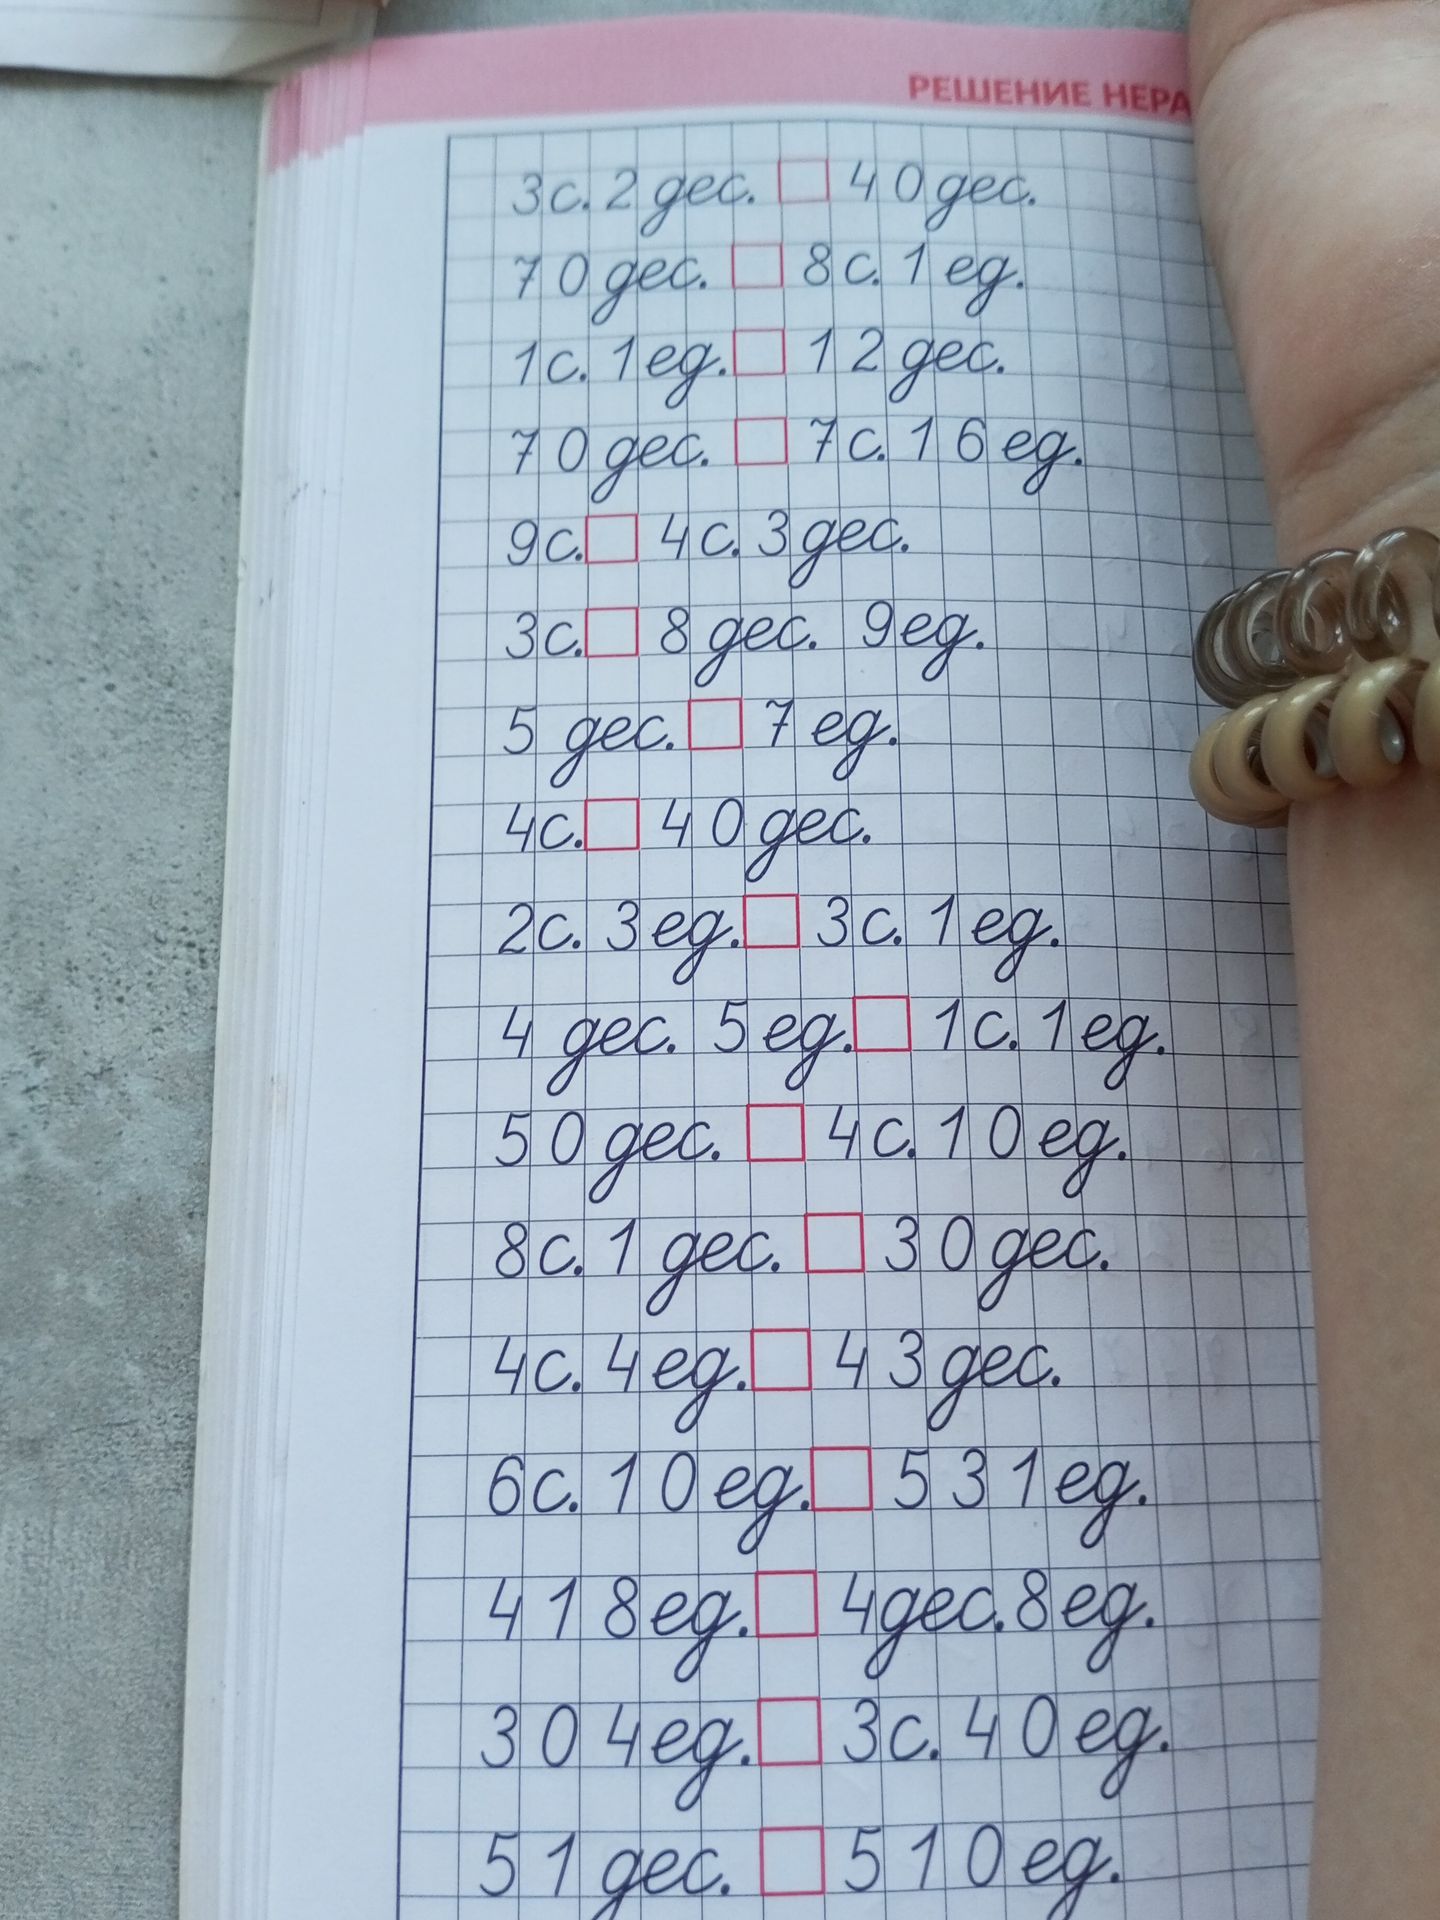 РЕШЕНИЕ НЕРА
3 с. 2 дес. □ 40 дес.
70 дес. □ 8 с. 1 ед.
1 с. 1 ед. □ 12 дес.
70 дес. □ 7 с. 16 ед.
9 с. □ 4 с. 3 дес.
3 с. □ 8 дес. 9 ед.
5 дес. □ 7 ед.
4 с. □ 40 дес.
2 с. 3 ед. □ 3 с. 1 ед.
4 дес. 5 ед. □ 1 с. 1 ед.
50 дес. □ 4 с. 10 ед.
8 с. 1 дес. □ 30 дес.
4 с. 4 ед. □ 43 дес.
6 с. 10 ед. □ 531 ед.
418 ед. □ 4 дес. 8 ед.
304 ед. □ 3 с. 40 ед.
51 дес. □ 510 ед.